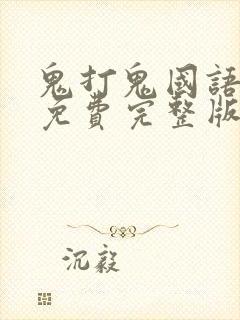 鬼打鬼國語
免費完整版
沉毅